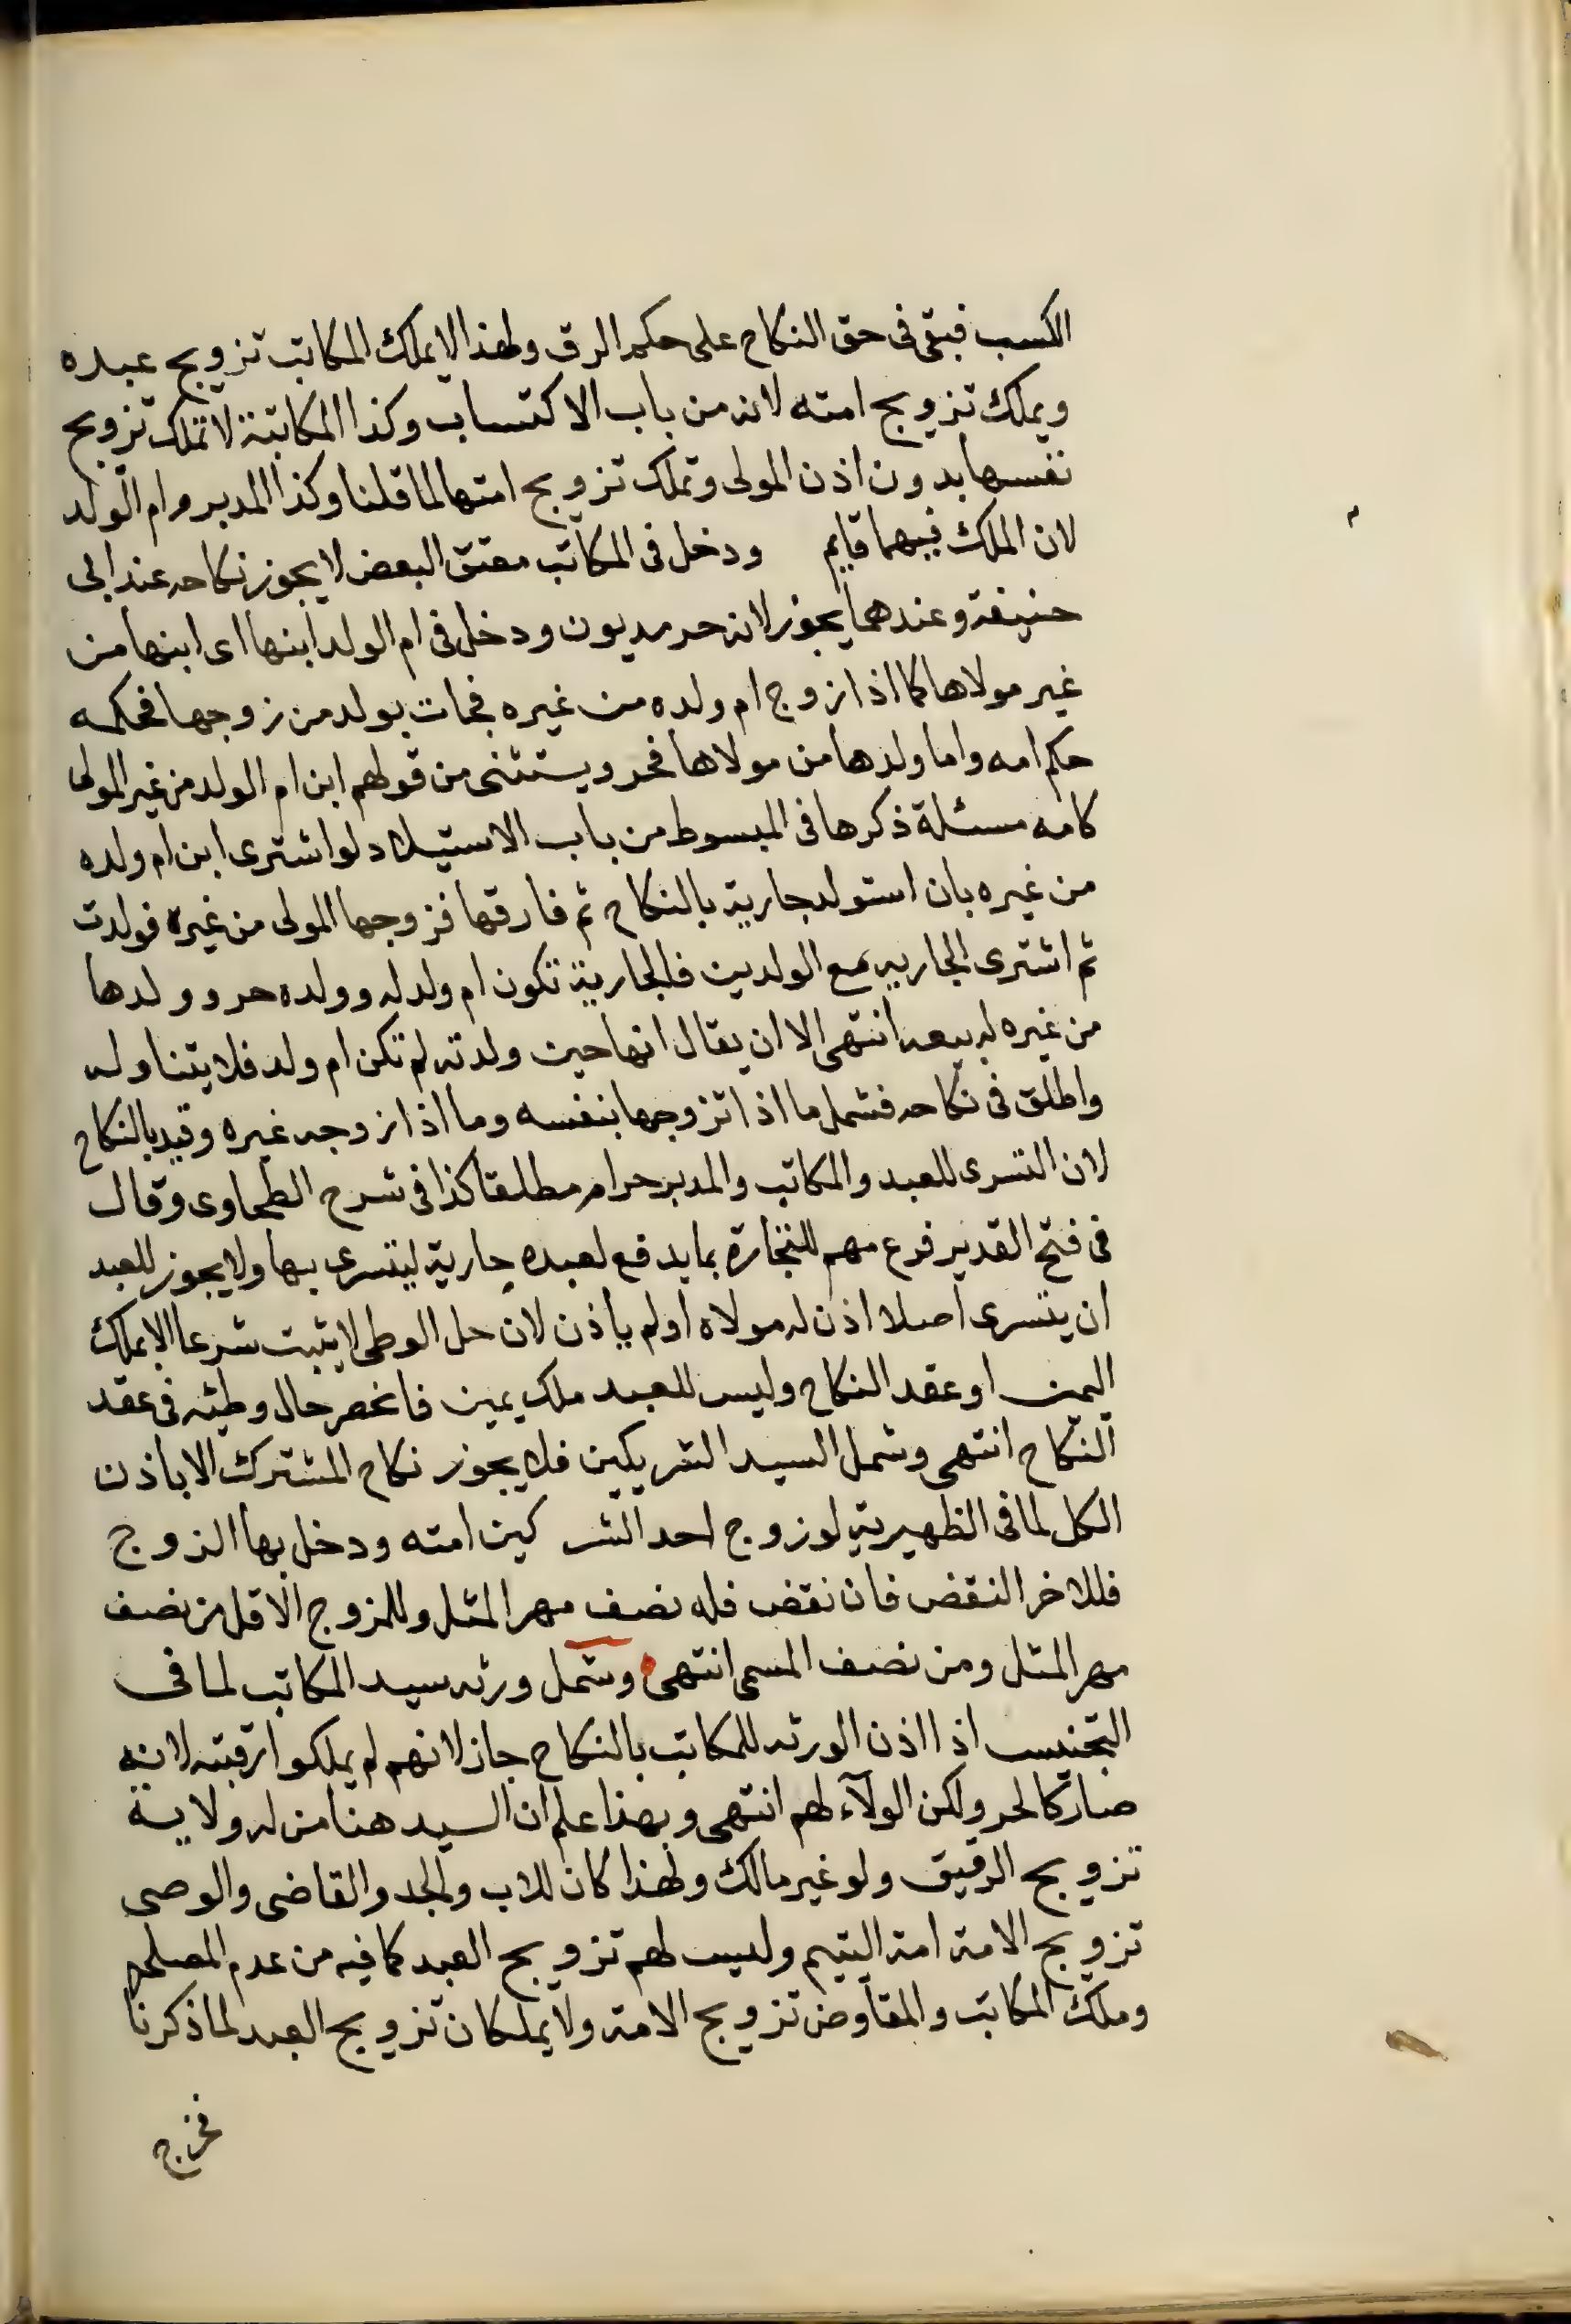 الكسب فبقى فى حق النكاح على حكم الرق ولهذا لا يملك المكاتب تزويج عبده
ويملك تزويج امته لانه من باب الاكتساب وكذا المكاتبة لا تملك تزويج
نفسها بدون اذن المولى وتملك تزويج امتها لما قلنا وكذا المدبر وام الولد
لان الملك فيهما قايم ودخل فى المكاتب معتق البعض لا يجوز نكاحه عند ابى
حنيفة وعندهما يجوز لانه حر مديون ودخل فى ام الولد ابنها اى ابنها من
غير مولاها كما اذا زوج ام ولده من غيره فجات بولد من زوجها فحكمه
حكم امه واما ولدها من مولاها فحر ويستثنى من قولهم ابن ام الولد من غير المولى
كامه مسئلة ذكرها فى المبسوط من باب الاستيلاد لو اشترى ابن ام ولده
من غيره بان استولد جارية بالنكاح ثم فارقها فزوجها المولى من غيره فولدت
ثم اشترى الجاريه مع الولدين فالجارية تكون ام ولد له وولده حر وولدها
من غيره له بيعه انتهى الا ان يقال انها حين ولدته لم تكن ام ولد فلا يتناوله
واطلق فى نكاحه فشمل ما اذا تزوجها بنفسه وما اذا زوجه غيره وقيد بالنكاح
لان التسرى للعبد والمكاتب والمدبر حرام مطلقا كذا فى شرح الطحاوى وقال
فى فتح القدير فرع مهم للتجارة بما يدفع لعبده جارية ليتسرى بها ولا يجوز للعبد
ان يتسرى اصلا اذن له مولاه او لم يأذن لان حل الوطى لا يثبت شرعا الا بملك
اليمين او عقد النكاح وليس للعبد ملك يمين فانحصر حال وطئه فى عقد
النكاح انتهى وشمل السيد الشريكين فلا يجوز نكاح المشترك الا باذن
الكل لما فى الظهيرية لو زوج احد الشركين امته ودخل بها الزوج
فللاخر النقض فان نقض فله نصف مهر المثل وللمزوج الاقل من نصف
مهر المثل ومن نصف المسمى انتهى وشمل ورثه سيد المكاتب لما فى
التجنيس اذا اذن الورثه للمكاتب بالنكاح جاز لانهم لم يملكوا رقبته لانه
صار كالحر ولكن الولآء لهم انتهى وبهذا علم ان السيد هنا من له ولاية
تزويج الرقيق ولو غير مالك ولهذا كان للاب والجد والقاضى والوصى
تزويج الامة امة اليتيم وليس لهم تزويج العبد كما فيه من عدم المصلحه
وملك المكاتب والمفاوض تزويج الامة ولا يملكان تزويج العبد لما ذكرنا
فخرج